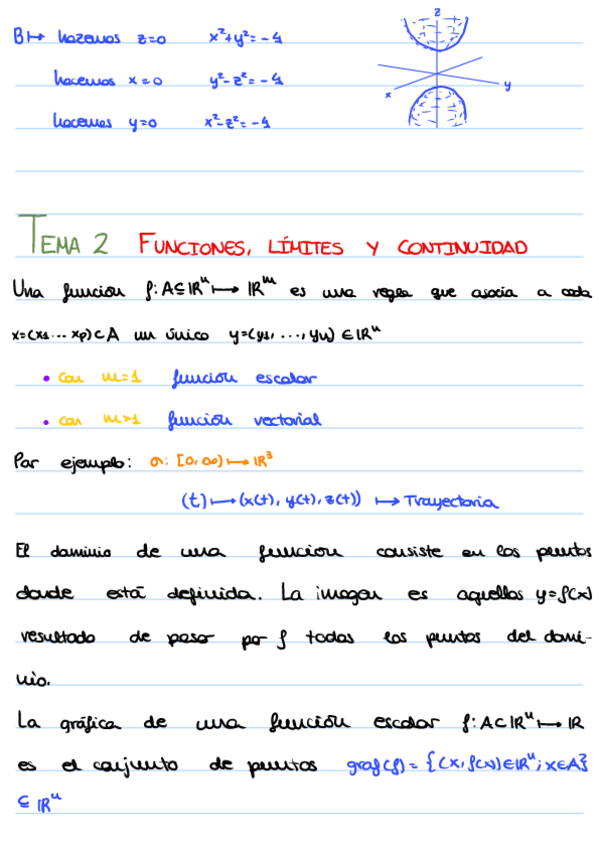 B ↦ hacemos z=0 x²+y²=-1
hacemos x=0 y²-z²=-1
hacemos y=0 x²-z²=-1
z
x
y
TEMA 2 FUNCIONES, LÍMITES Y CONTINUIDAD
Una función f: A⊆ℝⁿ ↦ ℝᵐ es una regla que asocia a cada
x=(x1 ... xp)⊂A un único y=(y1, ..., yn) ∈ℝⁿ
• con m=1 función escalar
• con m>1 función vectorial
Por ejemplo: σ: [0,∞) ↦ ℝ³
(t) ↦ (x(t), y(t), z(t)) ↦ Trayectoria
El dominio de una función consiste en los puntos
donde está definida. La imagen es aquellos y=f(x)
resultado de pasar por f todos los puntos del domi-
nio.
La gráfica de una función escalar f: A⊂ℝⁿ ↦ ℝ
es el conjunto de puntos graf(f) = {(x, f(x)) ∈ℝⁿ; x∈A}
⊆ ℝⁿ